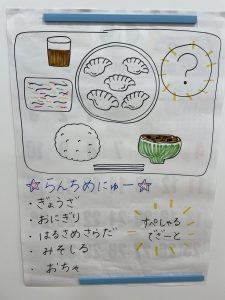 ?
☆らんちめにゅー☆
・ぎょうざ
・おにぎり
・はるさめさらだ
・みそしる
・おちゃ
すぺしゃる
でざーと